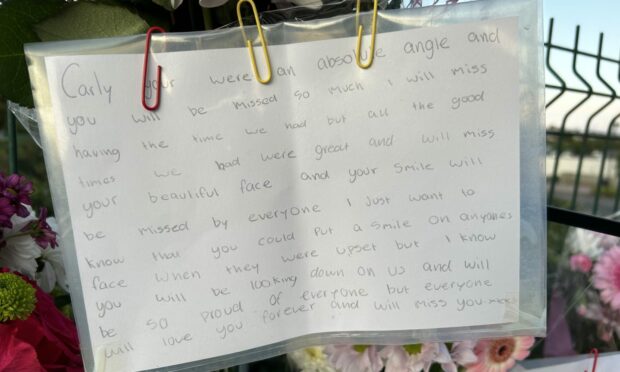 Carly your were an absolute angle and
you will be missed so much I will miss
having the time we had but all the good
times we had were great and will miss
your beautiful face and your smile will
be missed by everyone I just want to
know that you could put a smile on anyones
face when they were upset but I know
you will be looking down on us and will
be so proud of everyone but everyone
will love you forever and will miss you